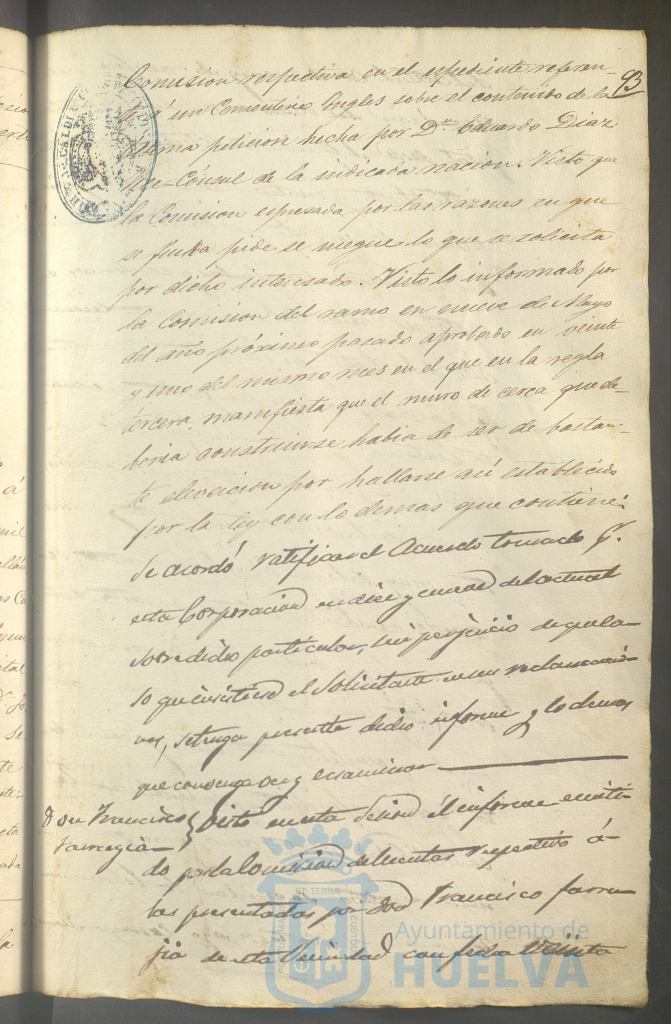 93
Comision respectiva en el espediente referen-
te á un Cementerio Ingles sobre el contenido de la
misma peticion hecha por Dn. Eduardo Diaz
Vice-Cónsul de la indicada nacion. Visto que
la Comision espresada por las razones en que
se funda pide se niegue lo que se solicita
por dicho interesado. Visto lo informado por
la Comision del ramo en nueve de Mayo
del año próximo pasado aprobado en veinte
y uno del mismo mes en el que en la regla
tercera, manifiesta que el muro de cerca que de-
beria construirse habia de ser de bastan-
te elevacion por hallarse asi establecido
por la ley con lo demas que contiene:
Se acordó ratificar el Acuerdo tomado pr.
esta Corporacion en diez y nueve del actual
sobre dicho particular, sin perjuicio de que ca-
so que insistiese el Solicitante en sus reclamacio-
nes, se tenga presente dicho informe y lo demas
que convenga ver y ecsaminar
Don Francisco
Farregia
Visto en esta Sesion el informe emiti-
do por la Comision de Cuentas respectivo á
las presentadas por Don Francisco Farre-
jia de esta Vecindad con fecha Veinte
Ayuntamiento de
HUELVA